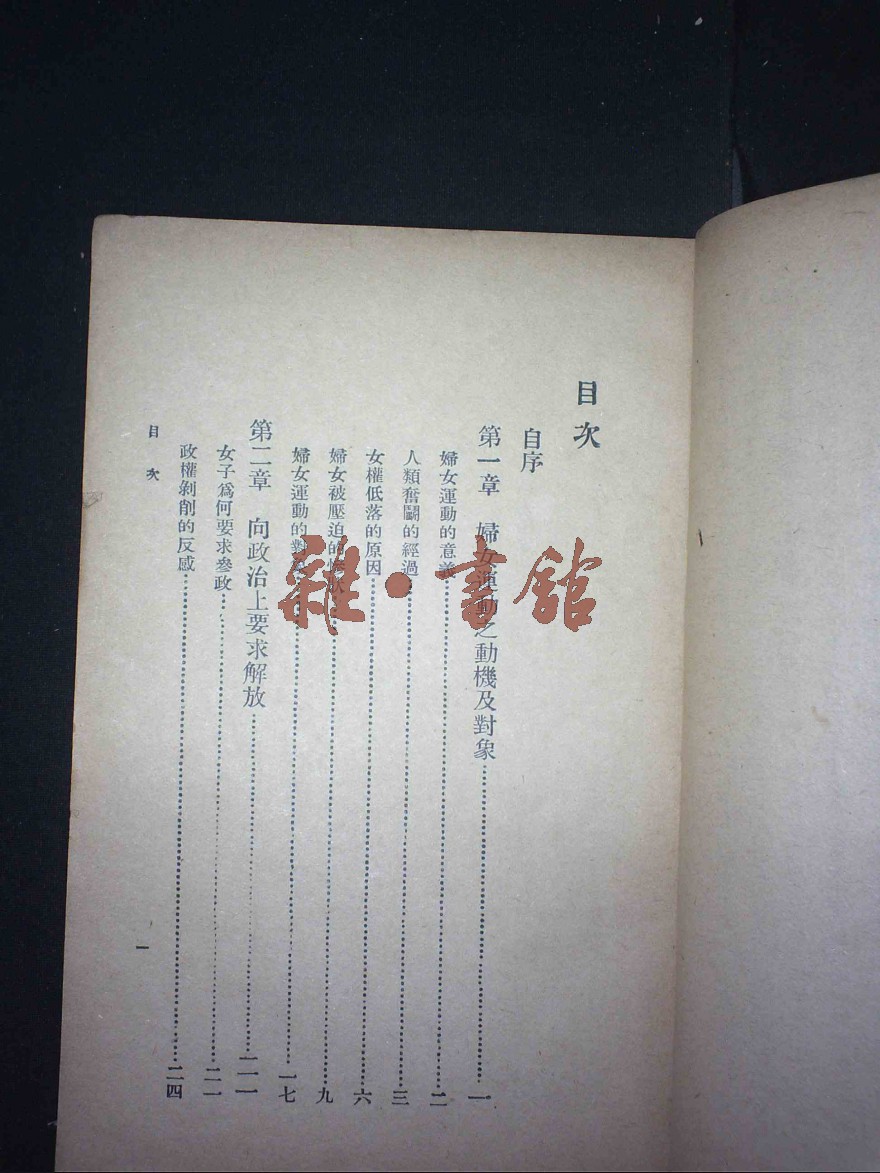 目次
自序
第一章　婦女運動之動機及對象……一
婦女運動的意義……二
人類奮鬭的經過……三
女權低落的原因……六
婦女被壓迫的慘狀……九
婦女運動的對象……一七
第二章　向政治上要求解放……二一
女子爲何要求參政……二一
政權剝削的反感……二四
目次
一
雜·書館